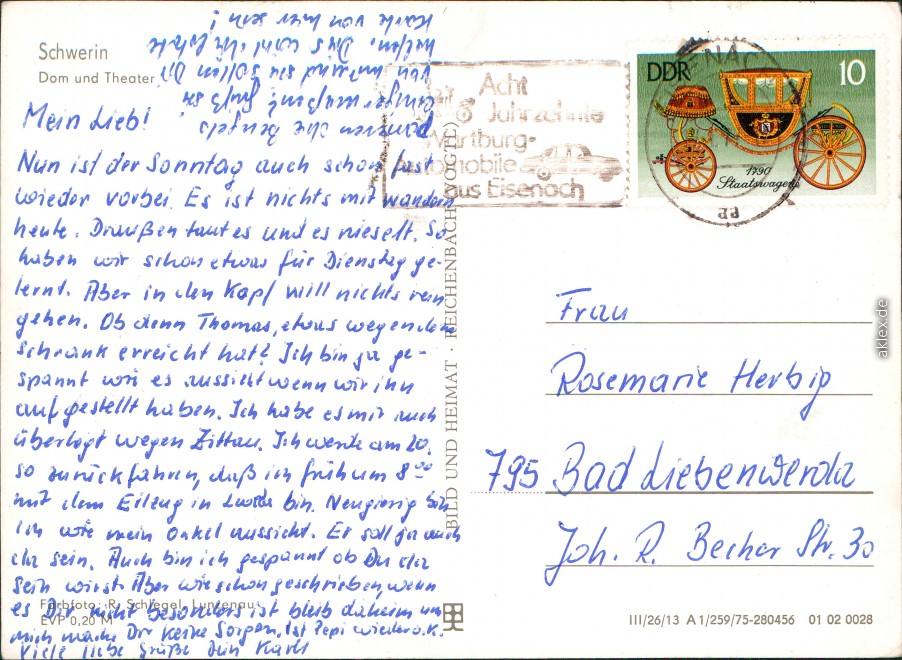 Schwerin
Dom und Theater
Mein Lieb!
Nun ist der Sonntag auch schon fast
wieder vorbei. Es ist nichts mit wandern
heute. Draußen taut es und es nieselt. So
haben wir schon etwas für Dienstag ge-
lernt. Aber in den Kopf will nichts rein
gehen. Ob denn Thomas, etwas wegen dem
Schrank erreicht hat? Ich bin ja ge-
spannt wie es aussieht wenn wir ihn
aufgestellt haben. Ich habe es mir auch
überlegt wegen Zittau. Ich werde am 20.
so zurückfahren, daß ich früh um 8⁰⁰
mit dem Eilzug in bin. Neugierig bin
ich wie mein Onkel aussieht. Er soll ja auch
da sein. Auch bin ich gespannt ob Du da
sein wirst. Aber wie schon geschrieben, wenn
es Dir nicht besonders ist bleib daheim um
mich mache Dir keine Sorgen. Ist Pepi wieder o.k.
Viele liebe Grüße Dein Karli
Farbfoto: R. Schlegel, Lunzenau
EVP 0,20 M
BILD UND HEIMAT · REICHENBACH (VOGTL)
Acht
Jahrzehnte
Wartburg-
automobile
aus Eisenach
DDR
10
1790
Staatswagen
Frau
Rosemarie Herbig
795 Bad Liebenwerda
Joh. R. Becher Str. 30
III/26/13 A 1/259/75-280456 01 02 0028
aklex.de